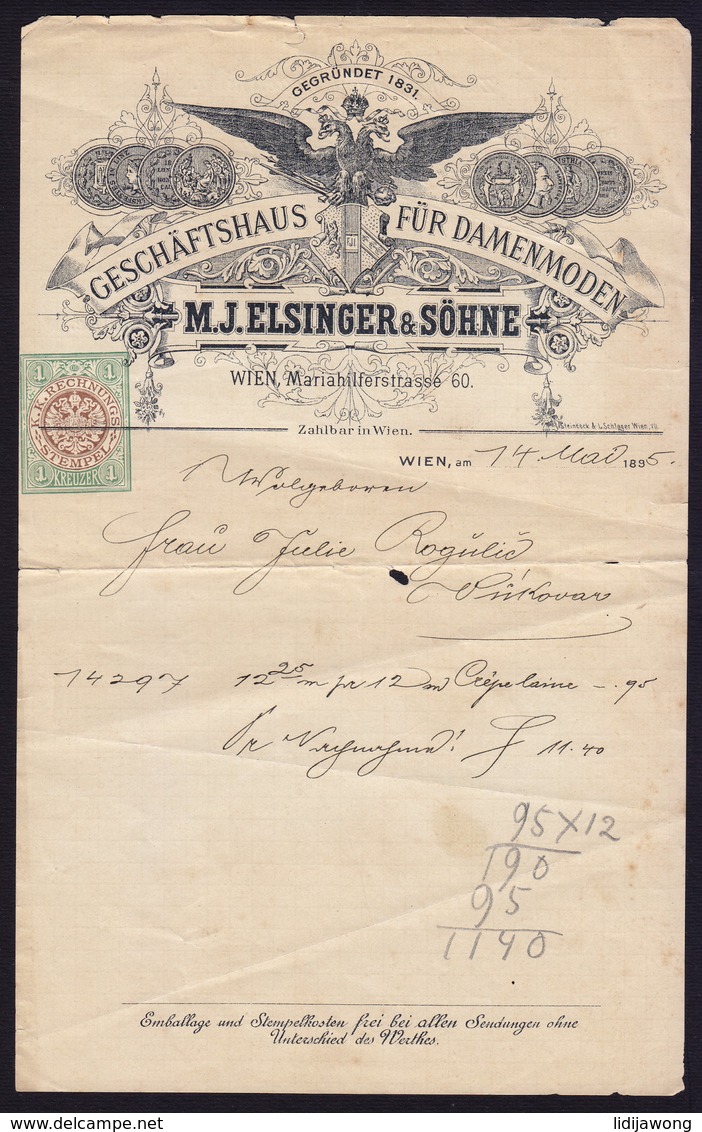 GEGRÜNDET 1831.
GESCHÄFTSHAUS FÜR DAMENMODEN
M.J. ELSINGER & SÖHNE
WIEN, Mariahilferstrasse 60.
Zahlbar in Wien.
1 1
K.K. RECHNUNGS
STEMPEL
1 KREUZER 1
WIEN, am 14. Mai 1895.
Wolgeboren
Frau Julie Rogulić
Vukovar
14297 12 25 m pr 12 m Crêpelaine -. 95
Pr Nachnahme! f 11.40
95 X 12
190
95
1140
Emballage und Stempelkosten frei bei allen Sendungen ohne
Unterschied des Werthes.
lidijawong